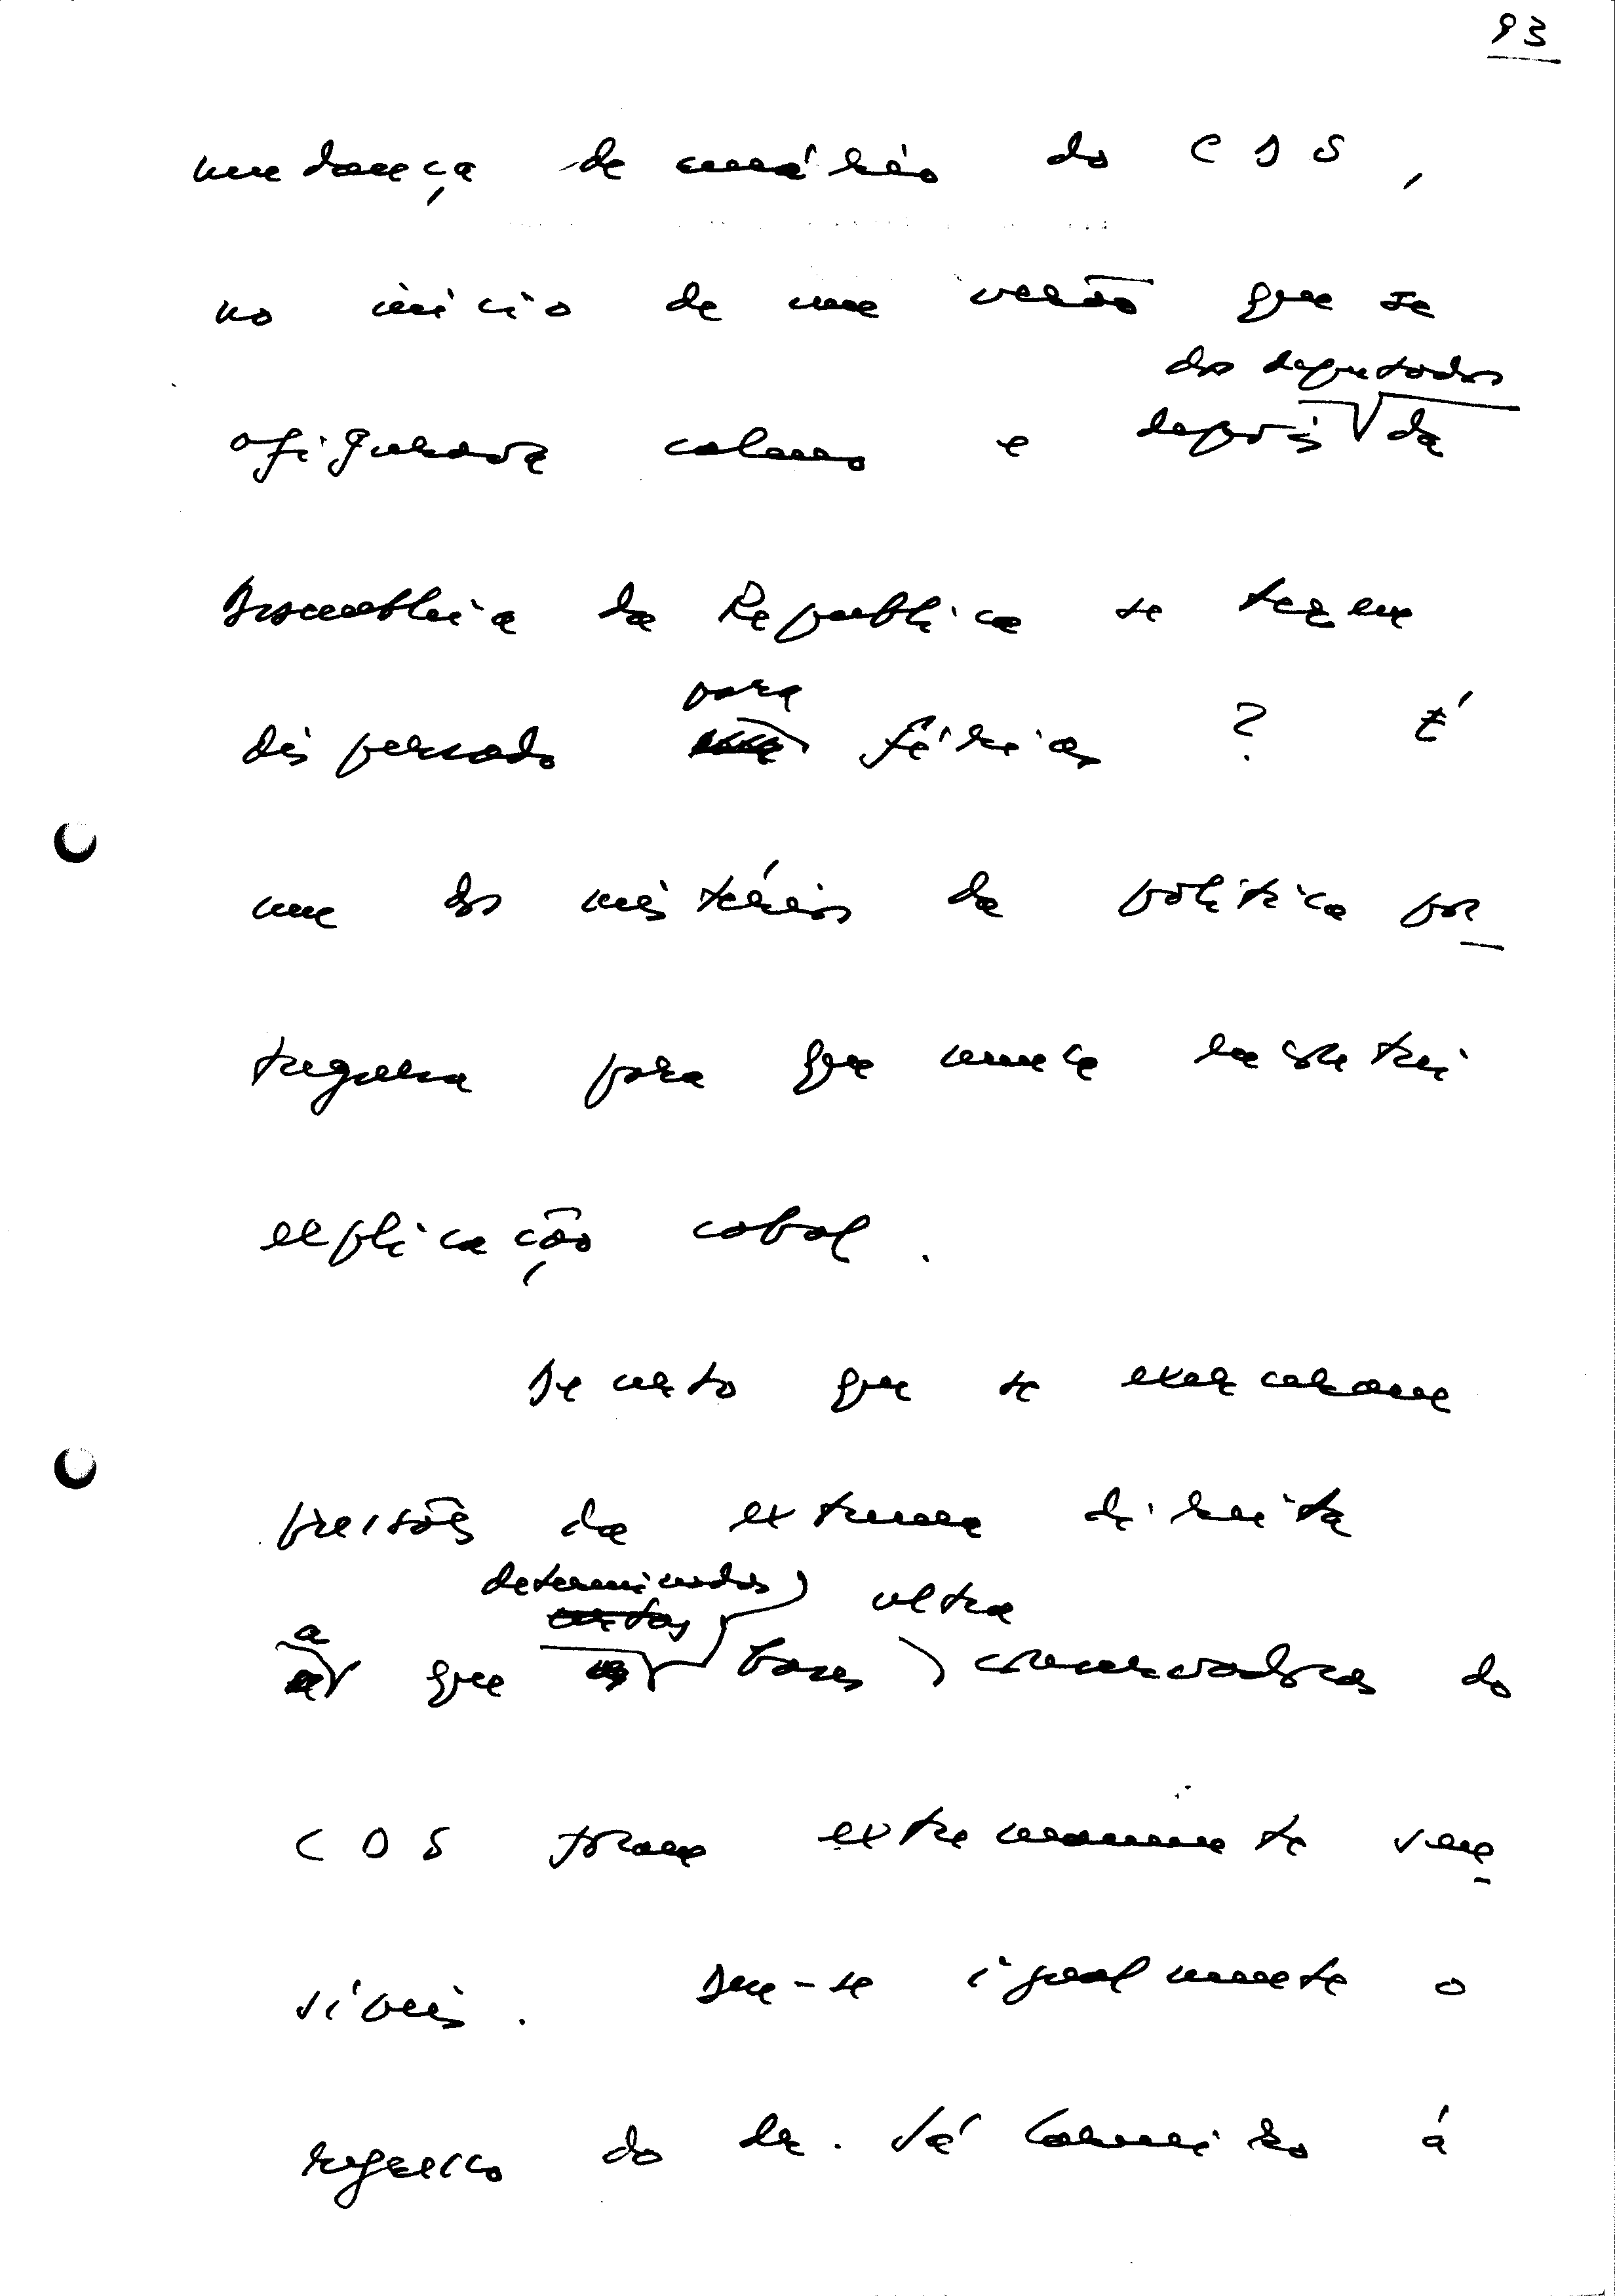 93
mudança de opinião do CDS,
no início de um verão que se
afigurava calmo e depois dos deputados da
Assembleia da República se terem
dispersado para férias? É
um dos mistérios da política por_
tuguesa para que nunca encontrei
explicação cabal.
De certo que se exerceram
pressões da extrema direita
a que determinadas bases ultra conservadoras do
CDS foram extremamente sen_
síveis. Deu-se igualmente o
regresso do dr. Sá Carneiro á